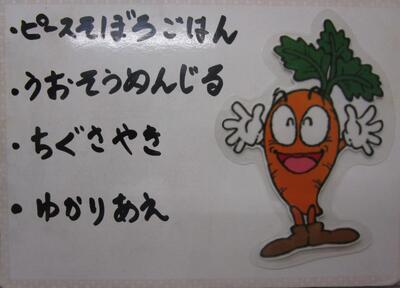 ・ピースそぼろごはん
・うおそうめんじる
・ちぐさやき
・ゆかりあえ